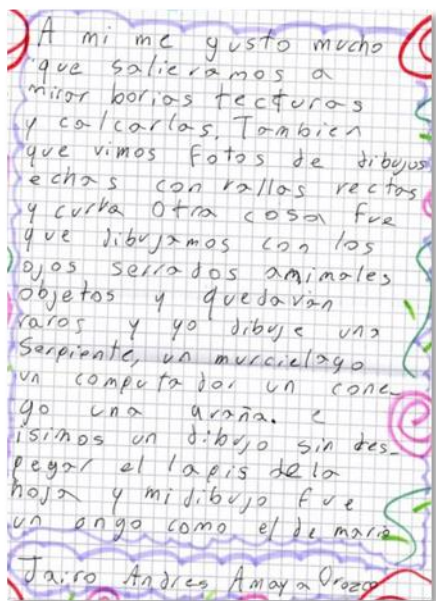 A mi me gusto mucho
que salieramos a
mirar borias tecturas
y calcarlas. Tambien
que vimos fotos de dibujos
echas con rallas rectas
y curba Otra cosa fue
que dibujamos con los
ojos serrados amimales
objetos y quedavan
raros y yo dibuje una
Serpiente, un murcielago
un computador un cone-
go una araña. e
isimos un dibujo sin des-
pegar el lapis de la
hoja y mi dibujo fue
un ongo como el de mario
Jairo Andres Amaya Orozco